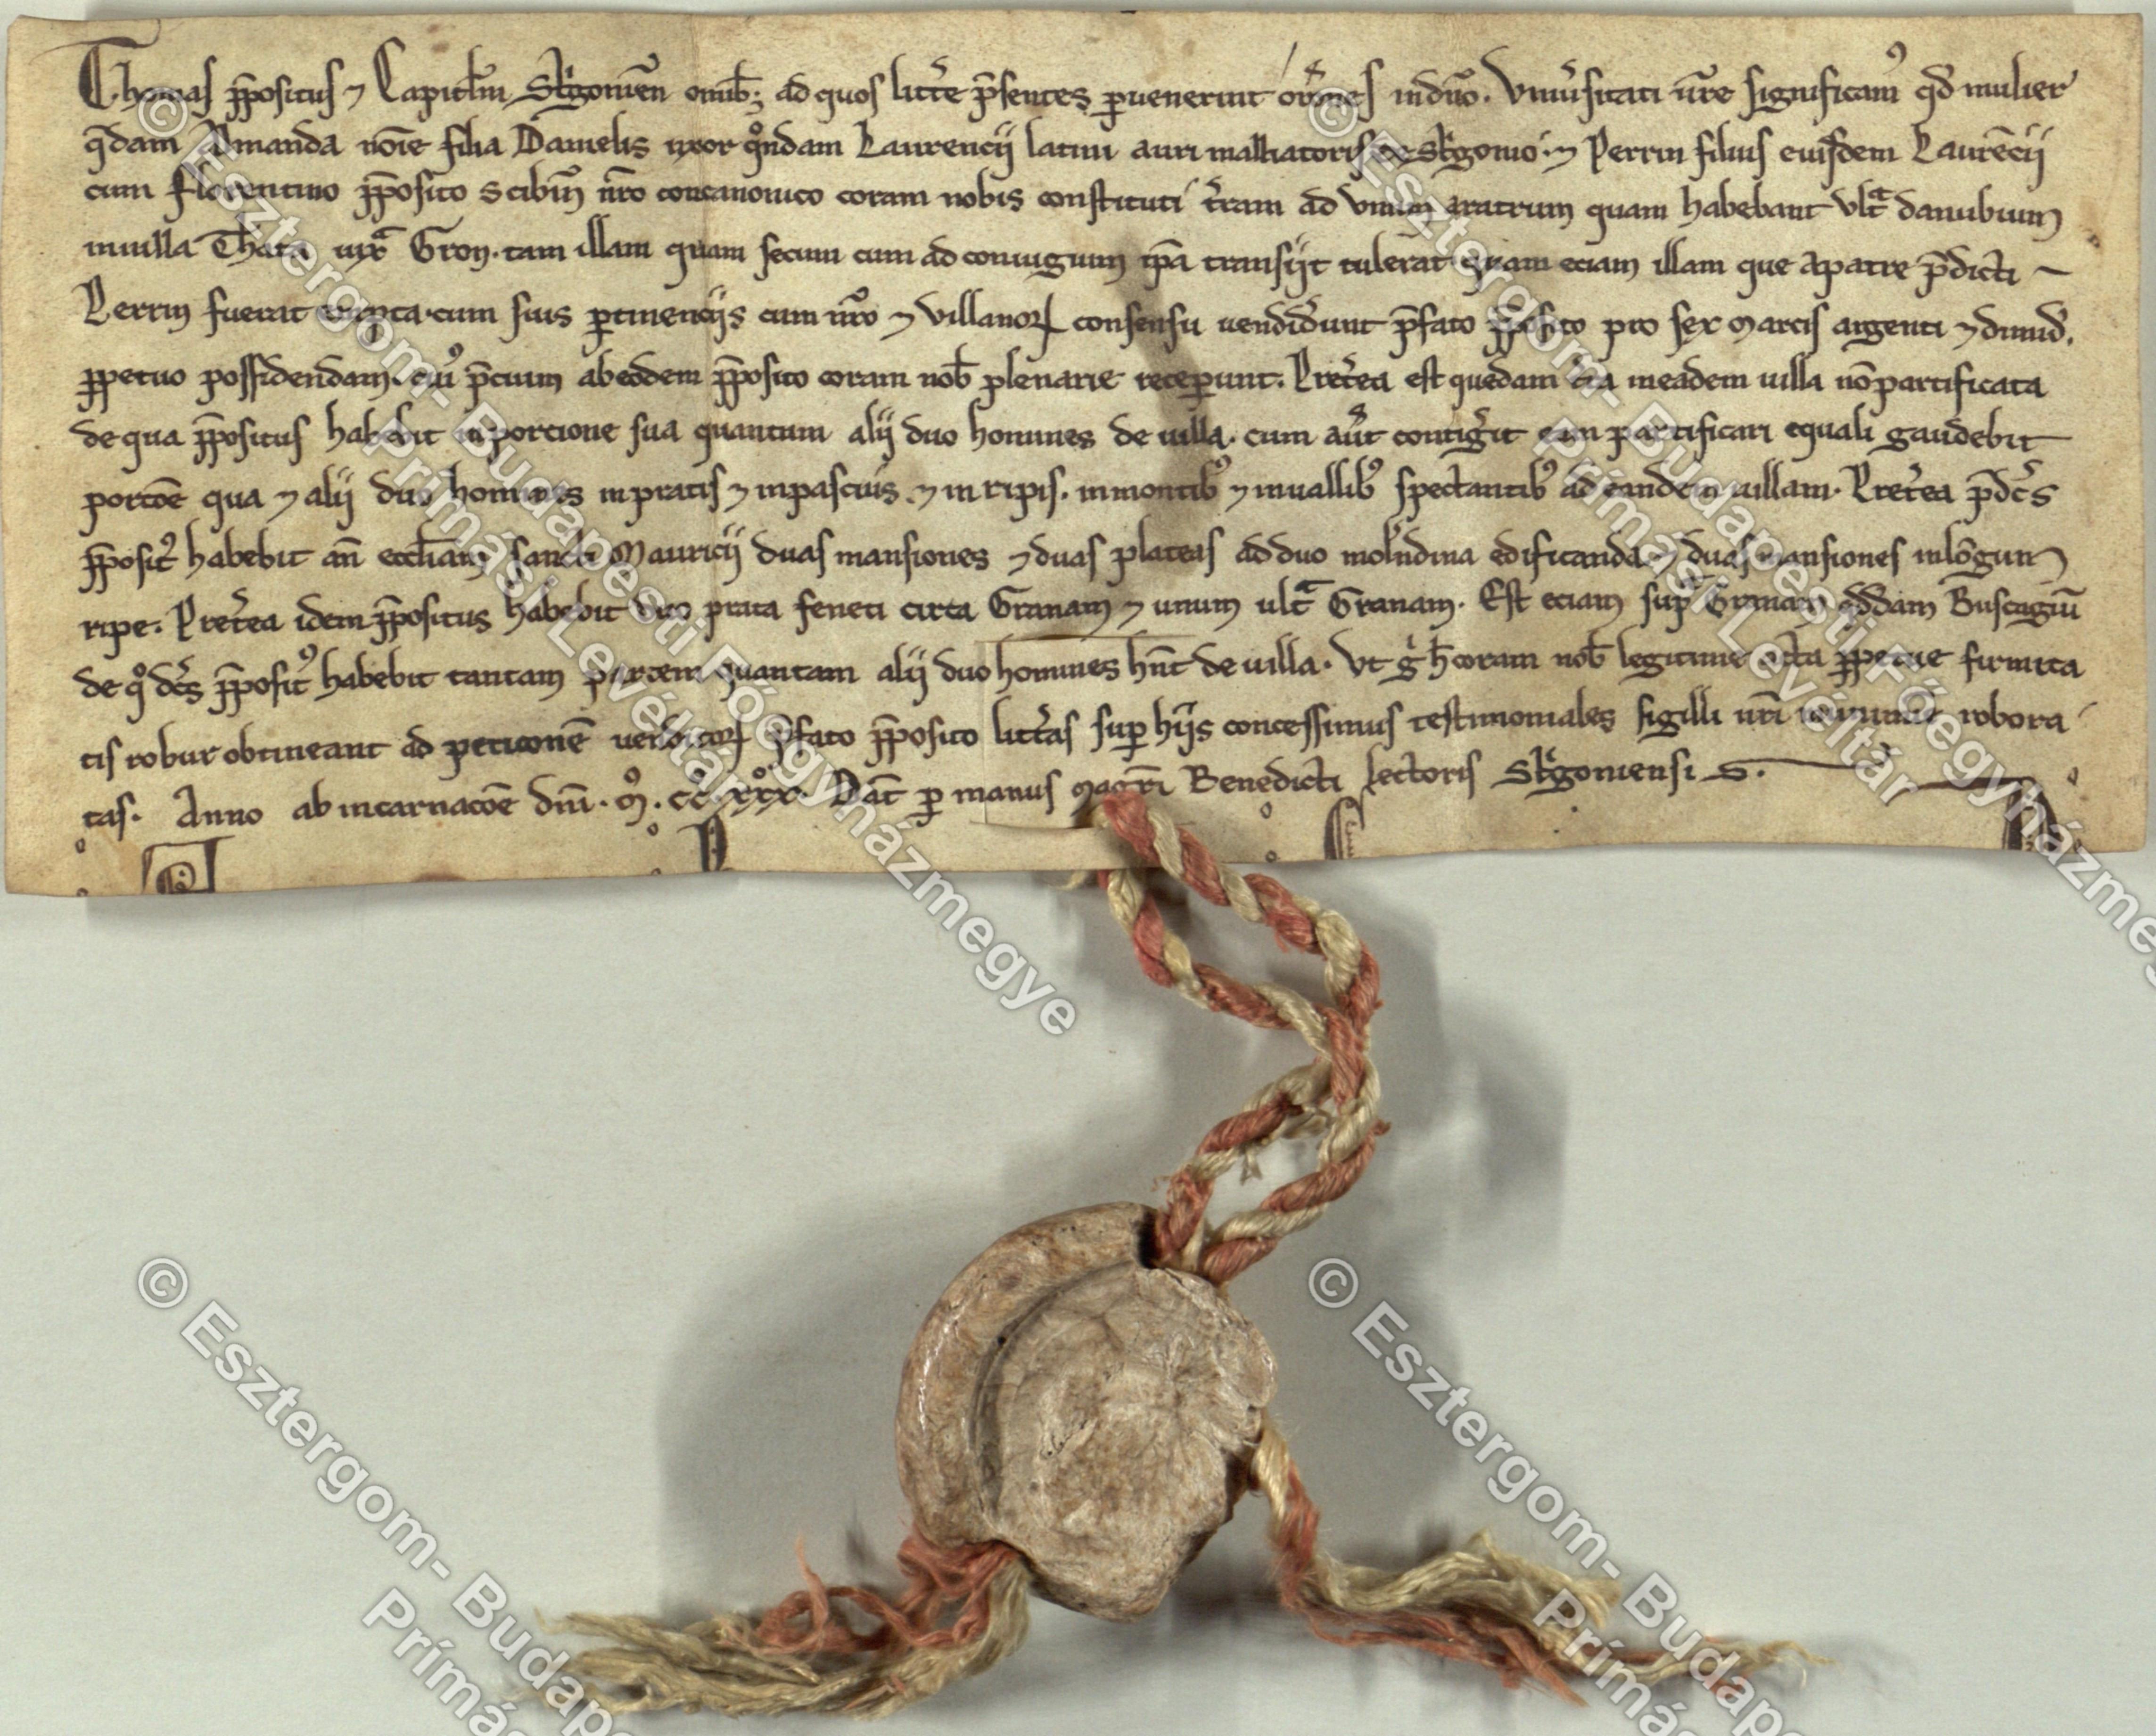 Thomas p̄positus ⁊ Capitl̄m Strigonien̄ omib; ad quos litt̓e p̄sentes ꝑuenerint or̄ones in dn̄o. Vniu̓sitati nr̄e significamꝰ qd̓ mulier
q̄dam Amanda noīe filia Danielis uxor qͦndam Laurencij latini auri malliatoris de Strigonio. ⁊ Perrin filius eiusdem Laurēcij
cum florentino p̄posito Scibin̄ nr̄o concanonico coram nobis constituti t̓ram ad vnum aratrum quam habebant vltͣ danubium
in uilla Thata iuxͣ Gron. tam illam quam secum cum ad coniugium ip̄a transijt tulerat quam eciam illam que a patre p̄dicti
Perrin fuerat empta. cum suis ꝑtinencijs cum nr̄o ⁊ villanoꝝ consensu uendid̓unt p̄fato p̄posito pro sex marcis argenti ⁊ dimid̓.
ꝑpetuo possidendam. cuiꝰ p̄cium ab eodem p̄posito coram nob̄ plenarie receꝑunt. Pret̓ea est quedam t̓ra in eadem uilla nō partificata
de qua p̄positus habebit in porcione sua quantum alij duo homines de uilla. cum aut̓ contig̓it eam partificari equali gaudebit
porcōe qua ⁊ alij duo homines in pratis ⁊ in pascuis ⁊ in ripis. in montibꝰ ⁊ in uallibꝰ spectantibꝰ ad eandem uillam. Pret̓ea p̄dc̓s
p̄positꝰ habebit an̄ eccl̄iam sancti Mauricij duas mansiones ⁊ duas plateas ad duo molendina edificanda ⁊ duas mansiones in lōgum
ripe. Pret̓ea idem p̄positus habebit duo prata feneti circa Granam ⁊ unum ultͣ Granam. Est eciam suꝑ Granam qd̓dam Buscagiū
de qͦ dc̓s p̄positꝰ habebit tantam partem quantam alij duo homines hn̄t de uilla. Vt g̓ h̄ coram nob̄ legitime acta ꝑpetue firmita
tis robur obtineant ad peticionē uenditoꝝ p̄fato p̄posito litt̓as suꝑ hijs concessimus testimoniales sigilli nr̄i munimine robora
tas. Anno ab incarnacōe dn̄i. Mͦ. CCͦ.XXXͦ. Dat̄ ꝑ manus magr̄i Benedicti lectoris Strigoniensis.
© Esztergom- Budapesti Főegyházmegye
Prímási Levéltár
© Esztergom- Budapesti Főegyházmegye
Prímási Levéltár
© Esztergom- Budapes
Prímás
© Esztergom- Budapes
Prímás